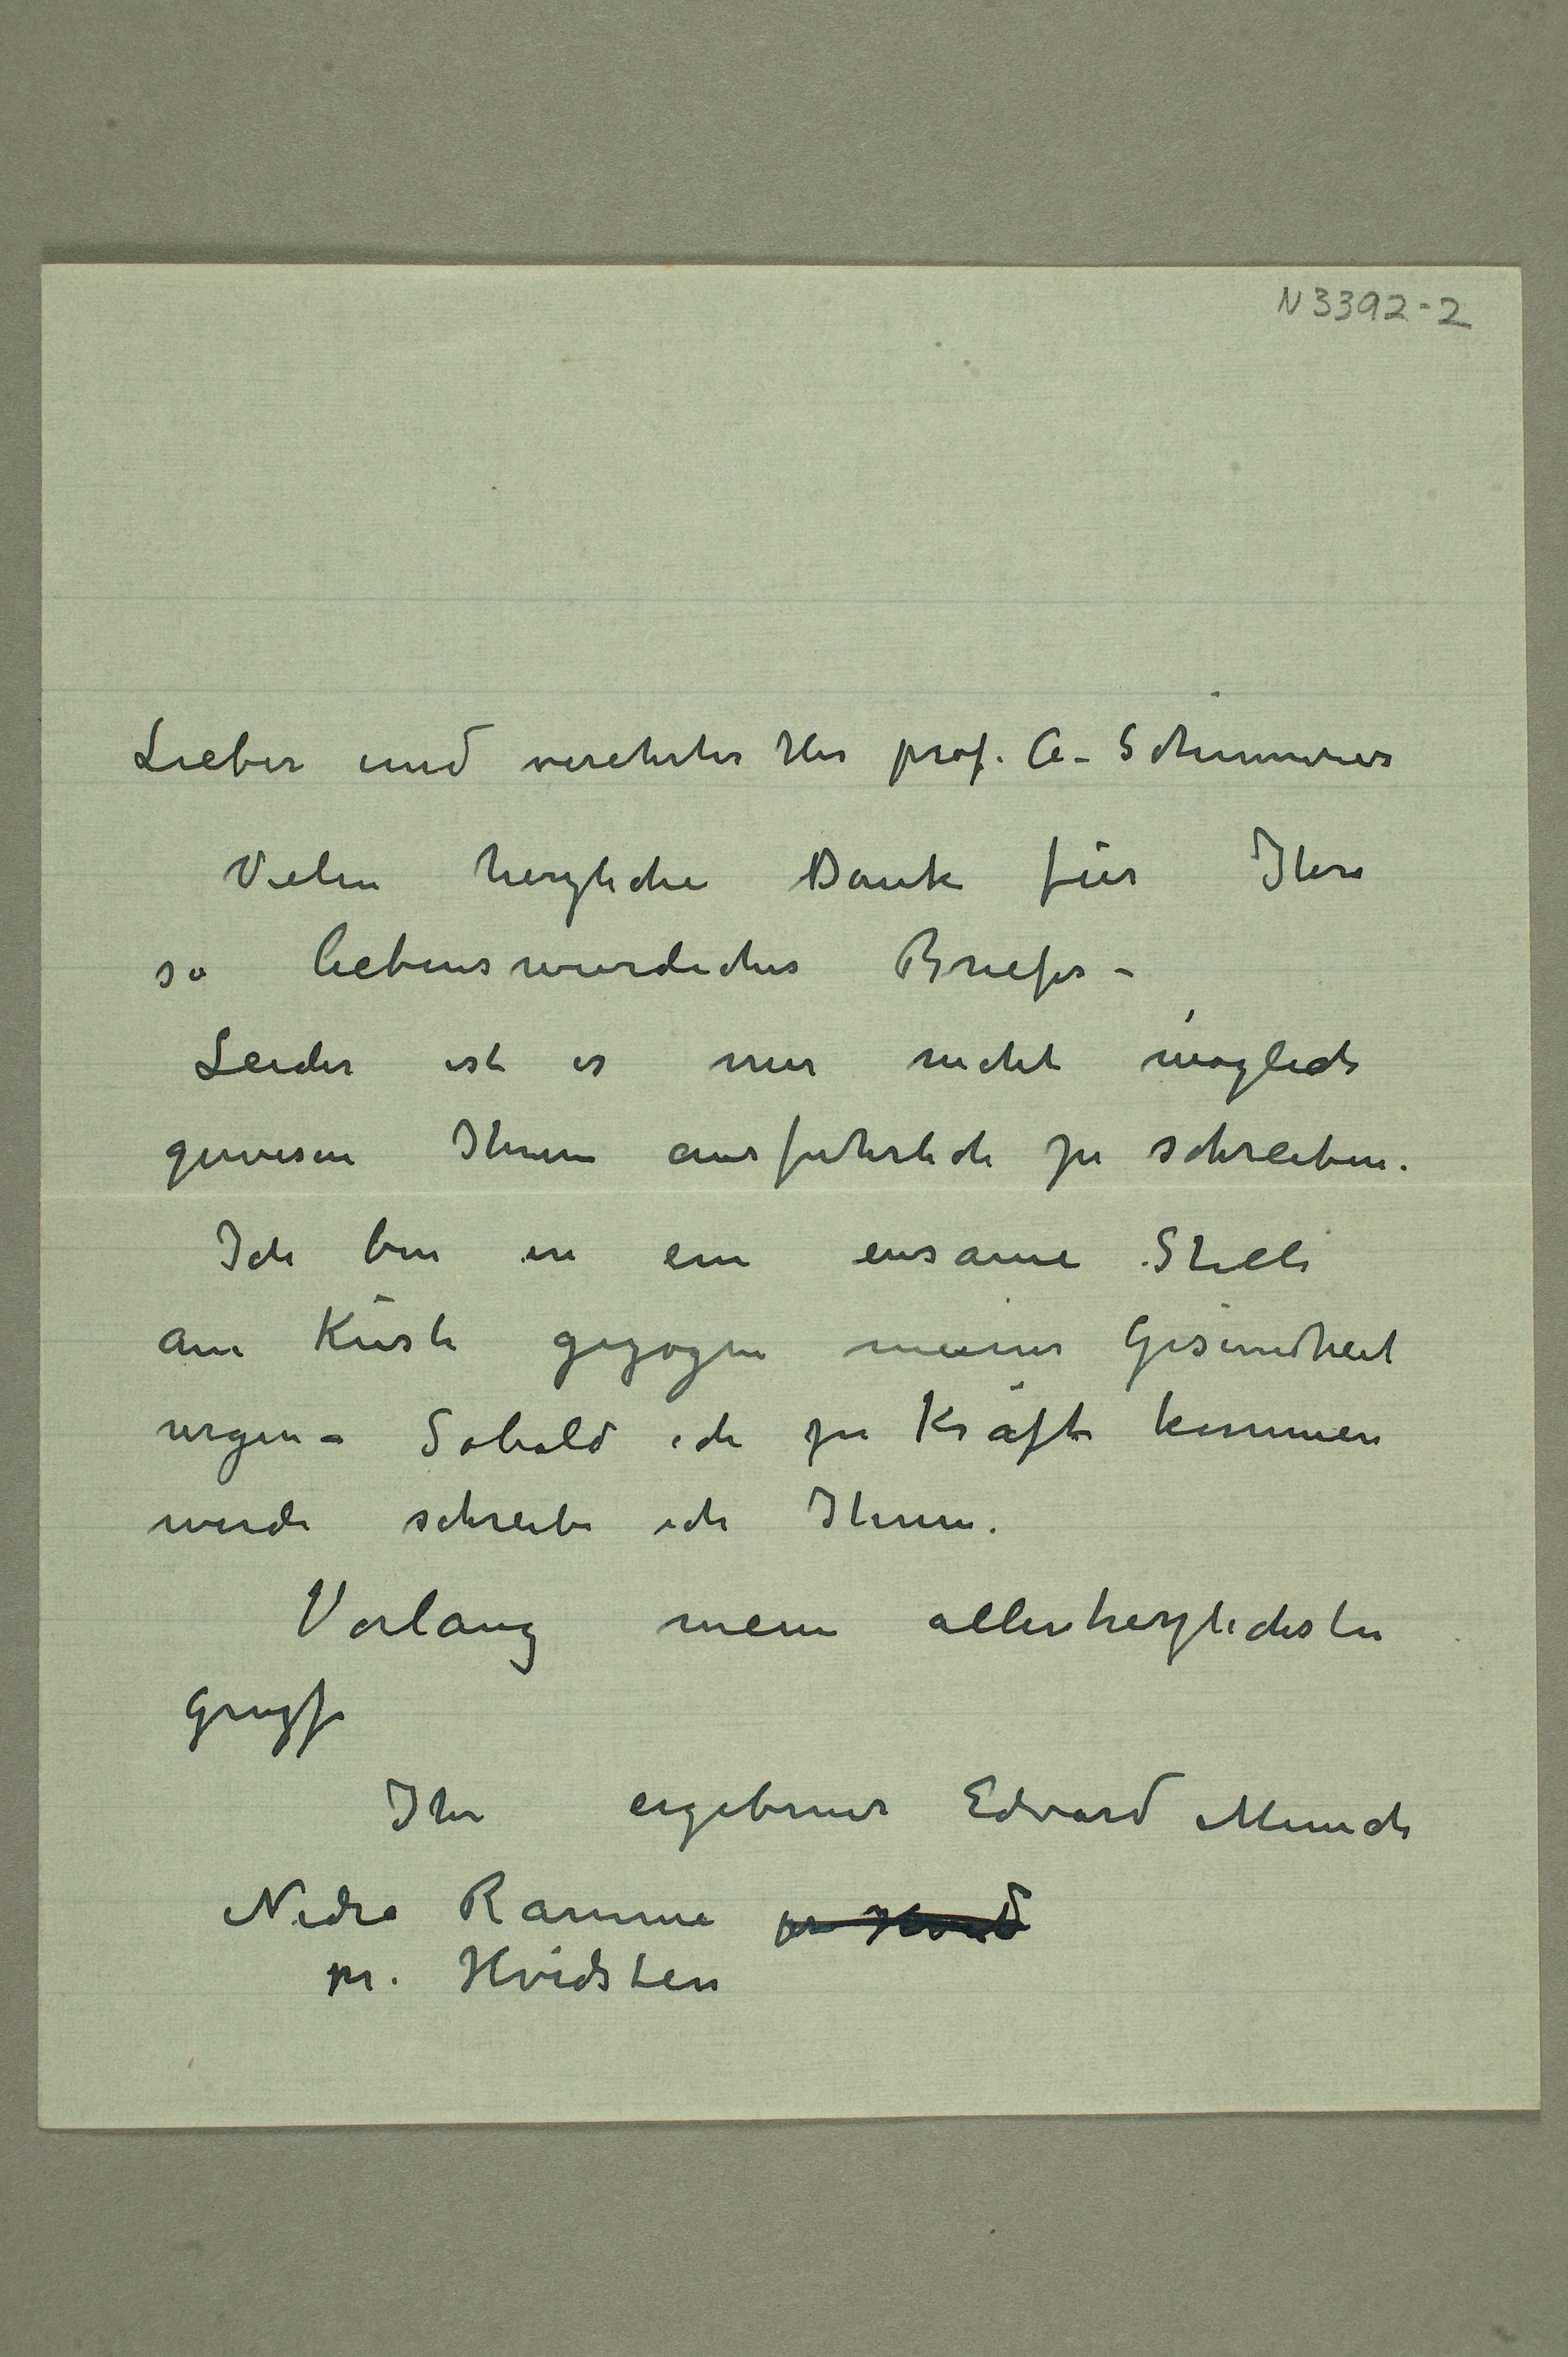 N 3392-2
Lieber und verehrter Her prof. A. Schinnerer
Vielen herzliche Dank für Ihre
so liebenswurdiches Briefes –
Leider ist es mir nicht möglich
gewesen Ihnen ausfuhrlich zu schreiben.
Ich bin in ein einsame Stelle
am Küste gezogen meiner Gesundheit
wegen – Sobald ich zu Kräfte kommen
werde schreibe ich Ihnen.
Vorlaug meine allerherzlichsten
Grüsse
Ihr ergebener Edvard Munch
Nedre Ramme pr Hvid
pr. Hvidsten